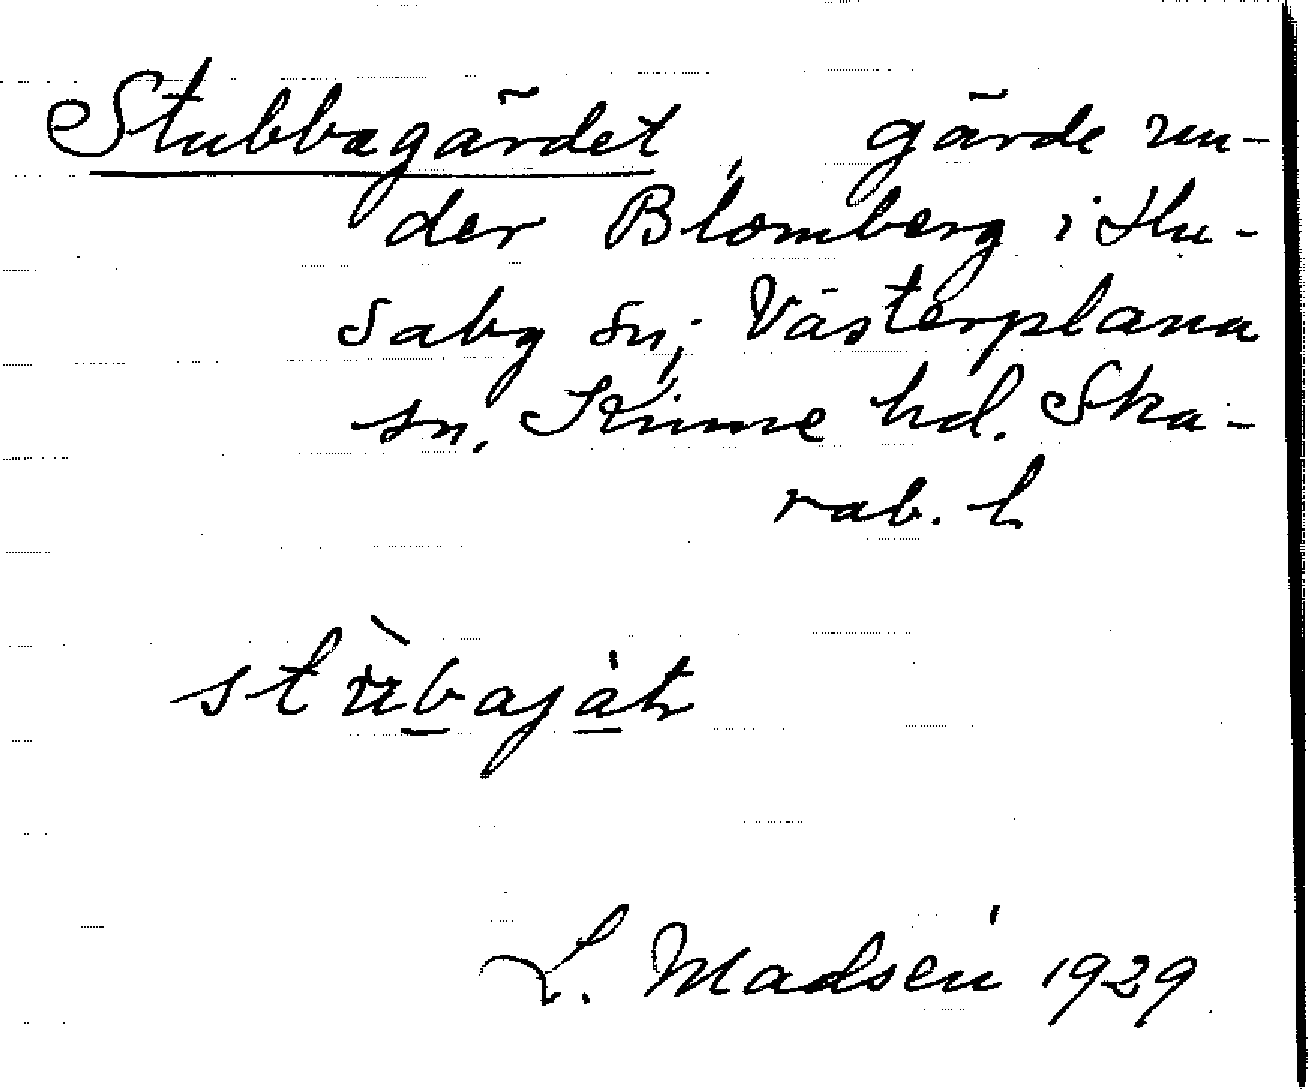 Stubbagärdet, gärde un-
der Blomberg i Hu-
saby sn; Västerplana
sn, Kinne hd. Ska-
rab. l
L. Madsén 1929